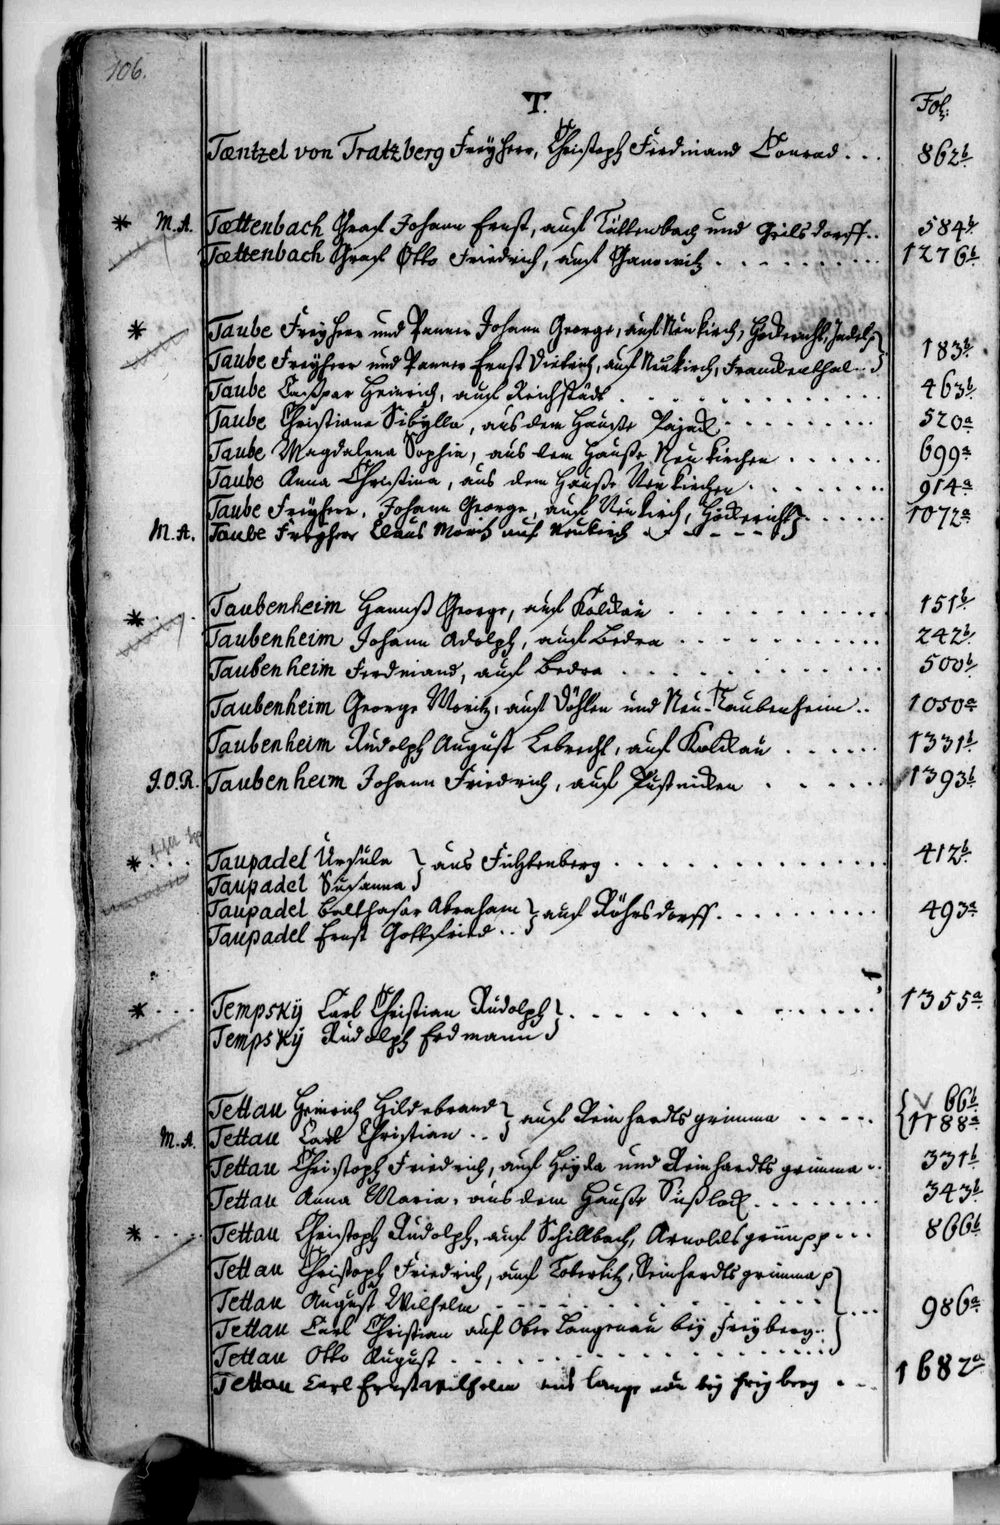 106.
T.
Fol:
Tæntzel von Tratzberg Freyherr, Christoph Ferdinand Conrad... 862b.
* M.A. Tættenbach Graf Johann Ernst, auf Tättenbach und Geilsdorff.. 584b.
Tættenbach Graf Otto Friedrich, auf Ganowitz 1276b.
* Taube Freyherr und Panner Johann George, auf Neukirch, Höckericht,
Taube Freyherr und Panner Ernst Dietrich, auf Neukirch, Franckenthal.. } 183b.
Taube Caspar Heinrich, auf Reichstädt 463b.
Taube Christiana Sibylla, aus dem Hauße 520a.
Taube Magdalena Sophia, aus dem Hauße Neukirchen 699a.
Taube Anna Christina, aus dem Hauße Neukirchen 914a.
Taube Freyherr, Johann George, auf Neukirch, Höckericht } 1072a.
M.A. Taube Freyherr Claus Moritz auf Neukirch
* Taubenheim Hannß George, auf Kolckau 151b.
Taubenheim Johann Adolph, auf Bedra 242b.
Taubenheim Ferdinand, auf Bedra 500b.
Taubenheim George Moritz, auf Döhlen und Neu-Taubenheim.. 1050a.
Taubenheim Rudolph August Lebrecht, auf Kolckau 1331b.
J.O.R. Taubenheim Johann Friedrich, auf 1393b.
* Taupadel Ursula } aus Fichtenberg 412b.
Taupadel Susanna
Taupadel Balthasar Abraham } auf Röhrsdorff 493a.
Taupadel Ernst Gottfried..
* Tempskÿ Carl Christian Rudolph } 1355a.
Tempskÿ Rudolph Erdmann
Tettau Heinrich Hildebrand } auf Reinhardtsgrimma { 66b.
M.A. Tettau Carl Christian.. 1188a.
Tettau Christoph Friedrich, auf Heyda und Reinhardtsgrimma.. 331b.
Tettau Anna Maria, aus dem Hauße 343b.
* Tettau Christoph Rudolph, auf Schillbach, Arnoldsgrünpp... 866b.
Tettau Christoph Friedrich, auf Tobertitz, Reinhardtsgrimma p
Tettau August Wilhelm } 986a.
Tettau Carl Christian auf Ober Langenau bey Freyberg..
Tettau Otto August
Tettau Carl Ernst Wilhelm auf Langenau bey Freyberg 1687a.